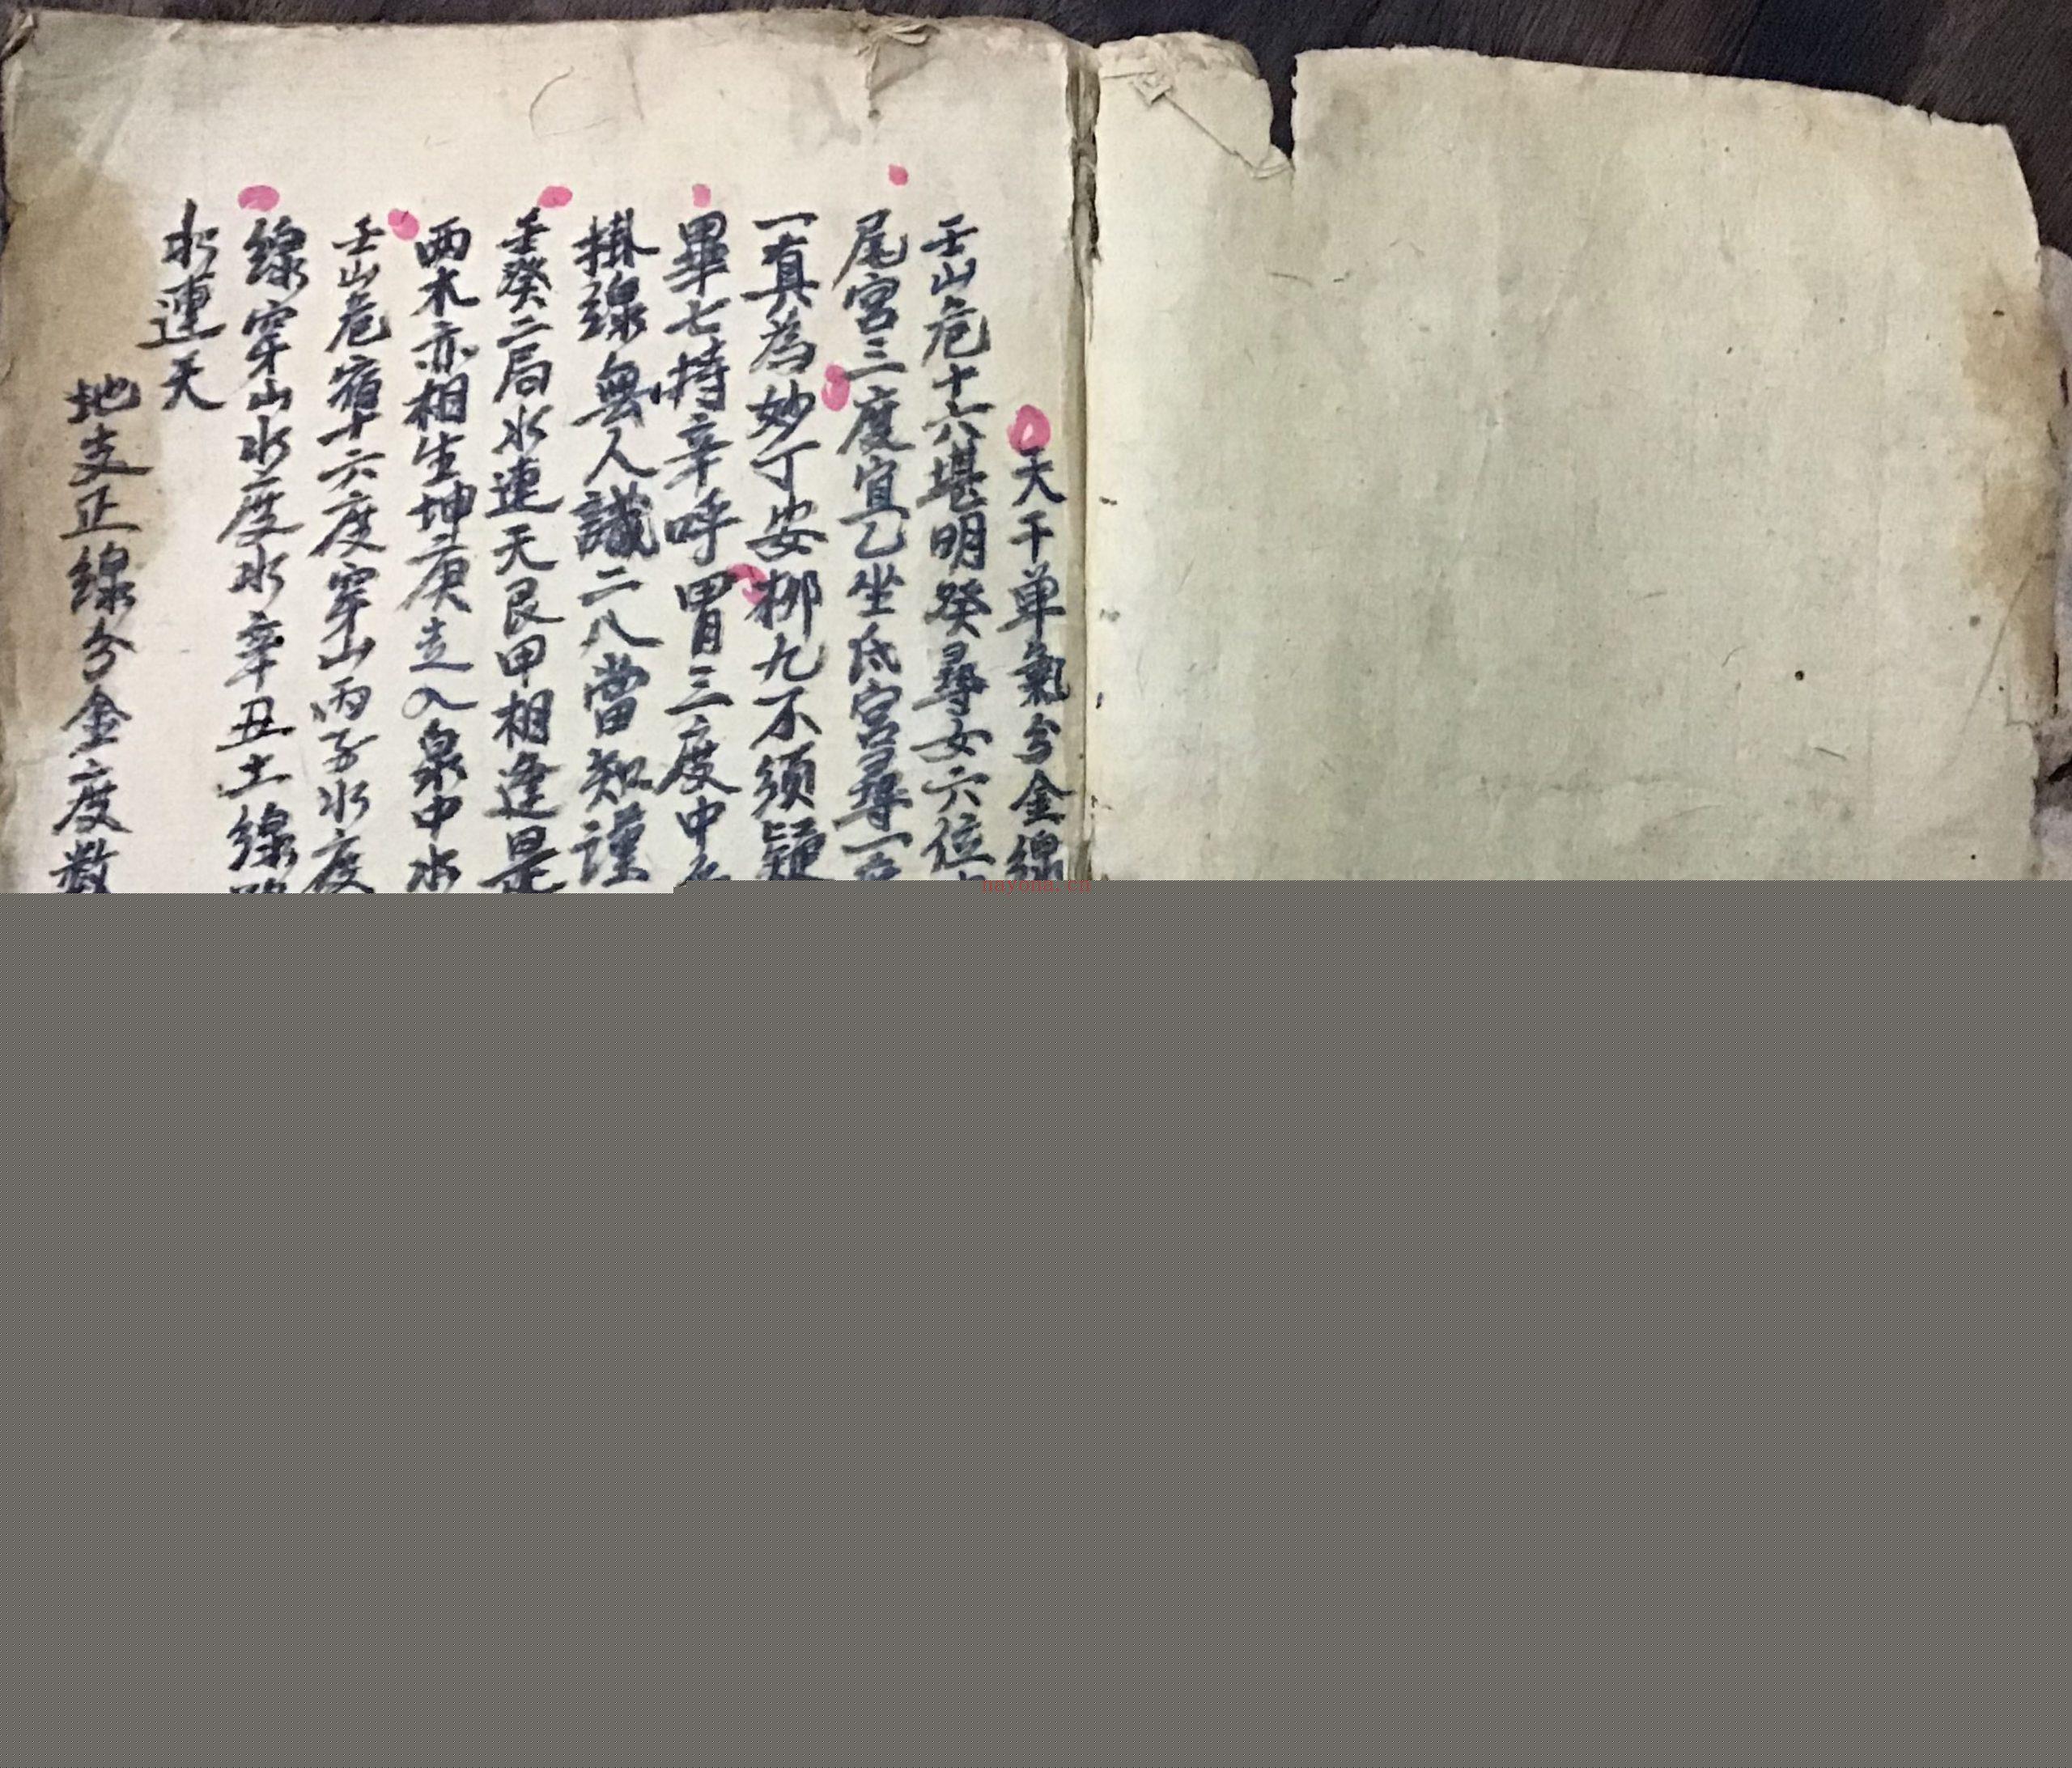 天干单氣分金線
壬山危十六堪明癸尋女六位
尾宮三度宜乙坐氐宮尋一
一真為妙丁安柳九不須疑
畢七持辛呼胃三度中
掛線無人識二八當知謹
壬癸二局水連天艮甲相逢是
兩木亦相生坤庚走入泉中水
壬山危宿十六度穿山丙子水度
線穿山水度水辛丑土線
水連天
地支正線分金度数
nayona.cn